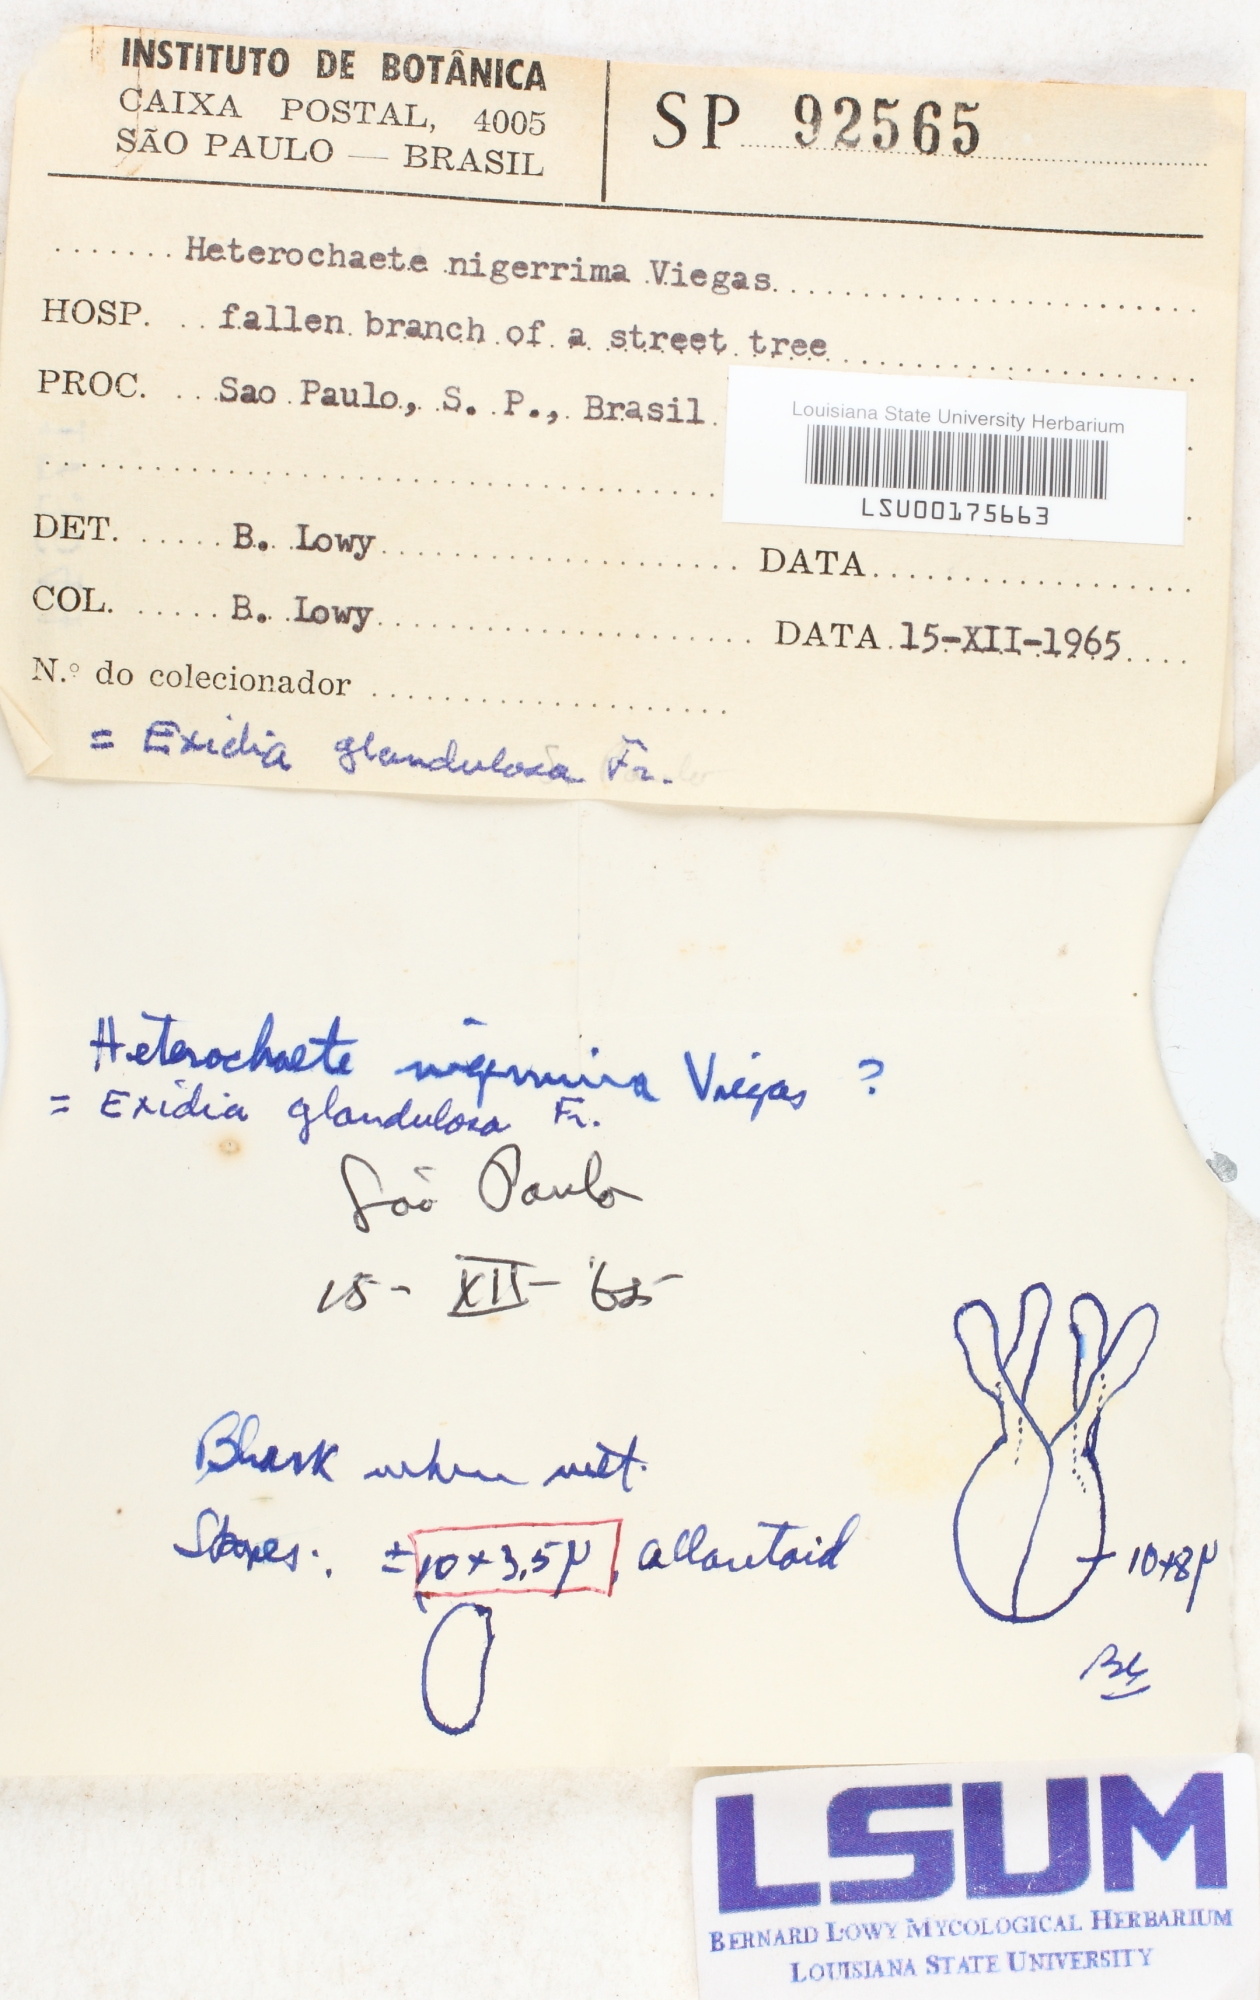 INSTITUTO DE BOTÂNICA
CAIXA POSTAL, 4005
SÃO PAULO — BRASIL
SP 92565
Heterochaete nigerrima Viegas
HOSP. fallen branch of a street tree
PROC. Sao Paulo, S. P., Brasil
Louisiana State University Herbarium
LSU00175663
DET. B. Lowy DATA
COL. B. Lowy DATA 15-XII-1965
N.º do colecionador
= Exidia glandulosa Fr.
Heterochaete nigerrima Viegas ?
= Exidia glandulosa Fr.
São Paulo
15 - XII - '65
Blank when wet.
Spores: ± 10 x 3,5 µ, allantoid
10x8µ
BL
LSUM
BERNARD LOWY MYCOLOGICAL HERBARIUM
LOUISIANA STATE UNIVERSITY